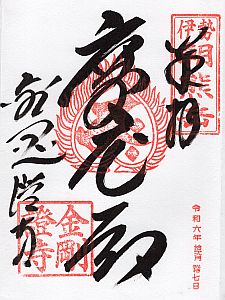 奉拝
伊勢
朝熊岳
摩尼殿
金剛證寺
金剛
證寺
令和六年